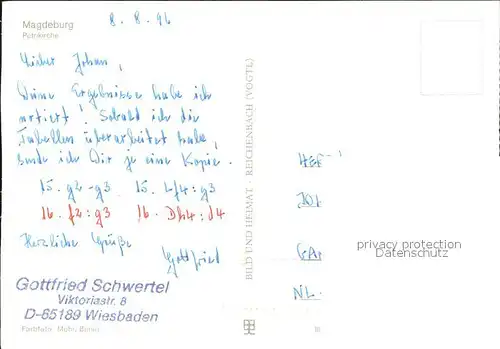 Magdeburg
Petrikirche
8. 8. 96
Lieber Johan,
Deine Ergebnisse habe ich
notiert! Sobald ich die
Tabellen überarbeitet habe,
sende ich Dir je eine Kopie.
15. g2-g3 15. Lf4:g3
16. f2:g3 16. Dh4:d4
Herzliche Grüße
Gottfried
Gottfried Schwertel
Viktoriastr. 8
D-65189 Wiesbaden
Farbfoto: Mohr, Berlin
BILD UND HEIMAT · REICHENBACH (VOGTL)
HER
JO
GA
NL-
privacy protection
Datenschutz